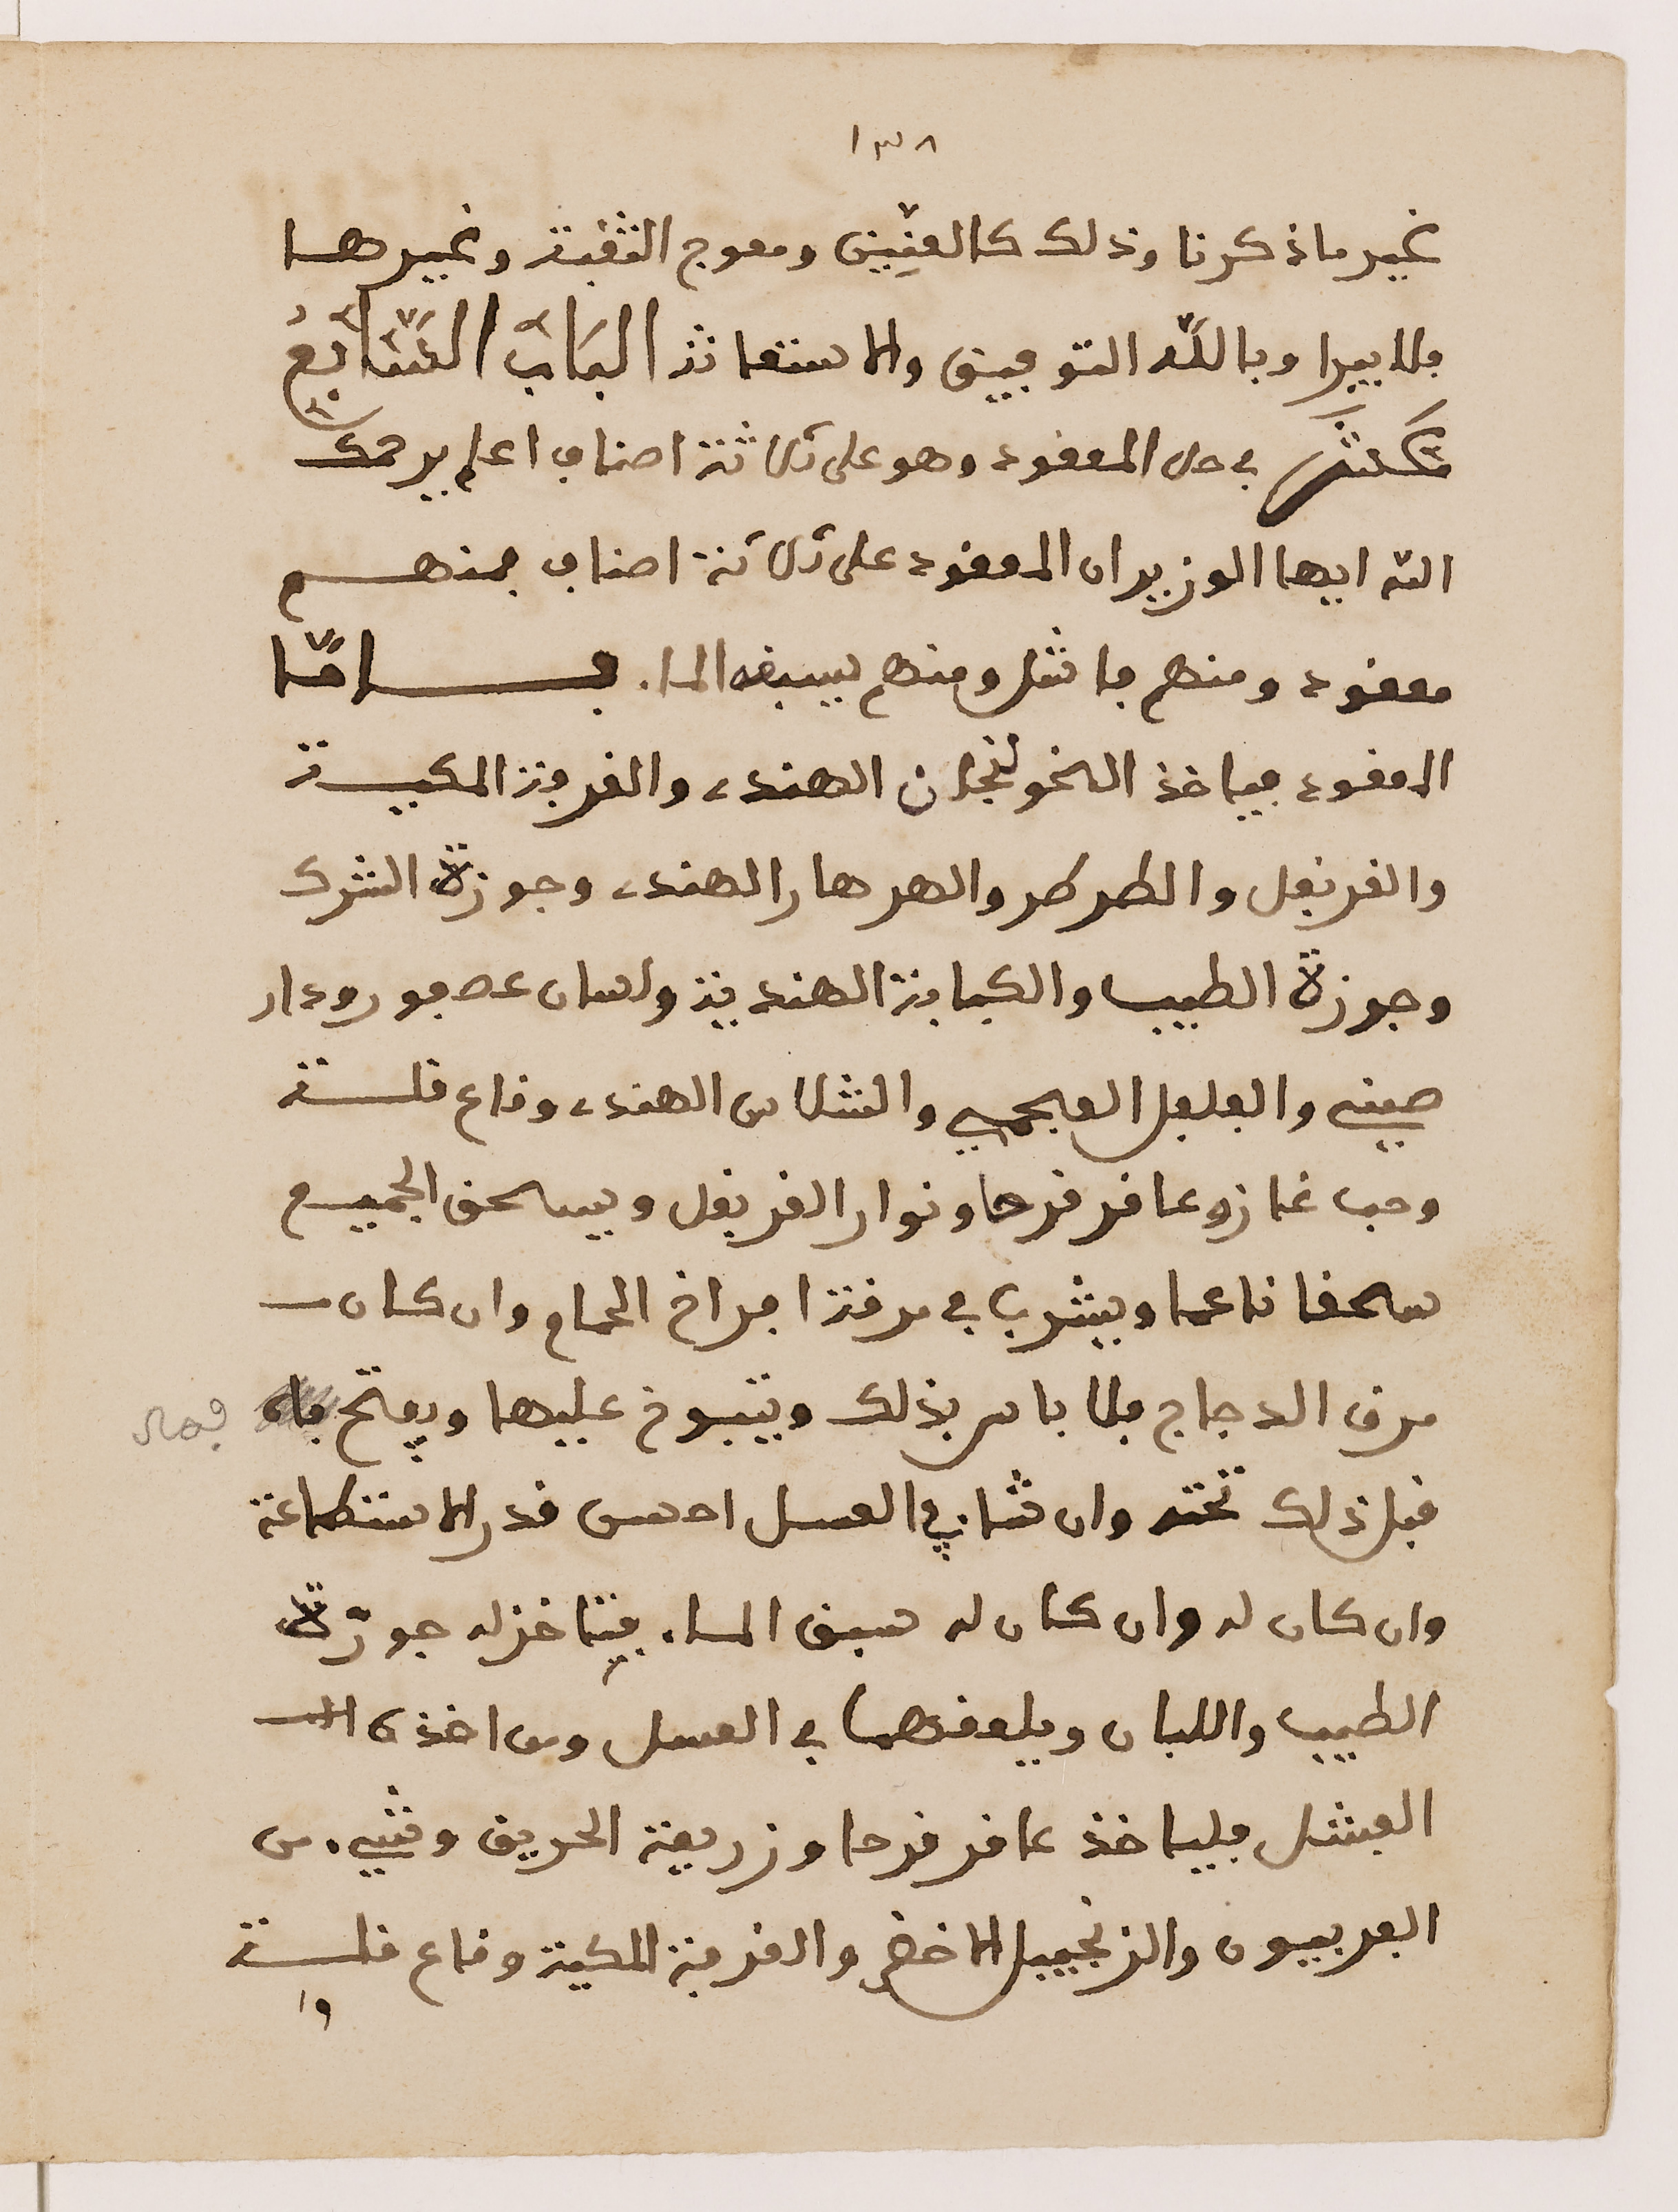 ١٣٨
غير ما ذكرنا وذلك كالعنين ومعوج الثقبة وغيرها
فلا يبرا وبالله التوفيق والاستعانة الباب السابع
عشر في حل المعقود وهو على ثلاثة اصناف اعلم يرحمك
الله ايها الوزير ان المعقود على ثلاثة اصناف فمنهم
معقود ومنهم فاشل ومنهم يسبقه الماء فاما
المعقود فياخذ الخولنجان الهندي والقرفة المكية
والقرنفل والطرطر والهرهار الهندي وجوزة الشرك
وجوزة الطيب والكبابة الهندية ولسان عصفور ودار
صيني والفلفل العجمي والشلاس الهندي وقاع قلة
وحب غازوعا قرقرحا ونوار القرنفل ويسحق الجميع
سحقا ناعما ويشرب في مرقة افراخ الحمام وان كان
مرق الدجاج فلا باس بذلك ويتبوخ عليها ويفتح فاه
قبل ذلك تحته وان شا في العسل احسن قدر الاستطاعة
وان كان له وان كان له سبق الماء فيتاخذ له جوزة
الطيب واللبان ويلعقهما في العسل ومن اخذه
الفشل فلياخذ عاقرقرحا وزريعة الحريق وشيء من
الفربيون والزنجبيل الاخضر والقرفة المكية وقاع قلة
وا